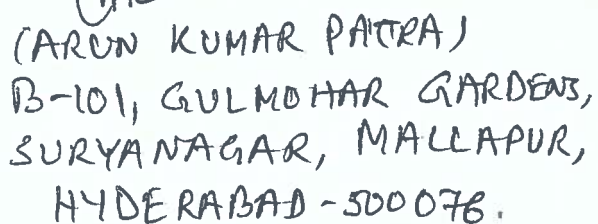 (ARUN KUMAR PATTRA)
B-101, GULMOHAR GARDENS,
SURYANAGAR, MALLAPUR,
HYDERABAD - 500076.